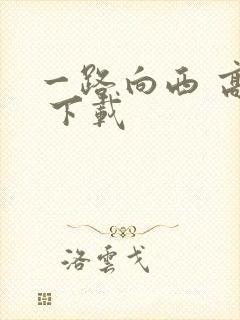 一路向西 高
下載
洛雲戈